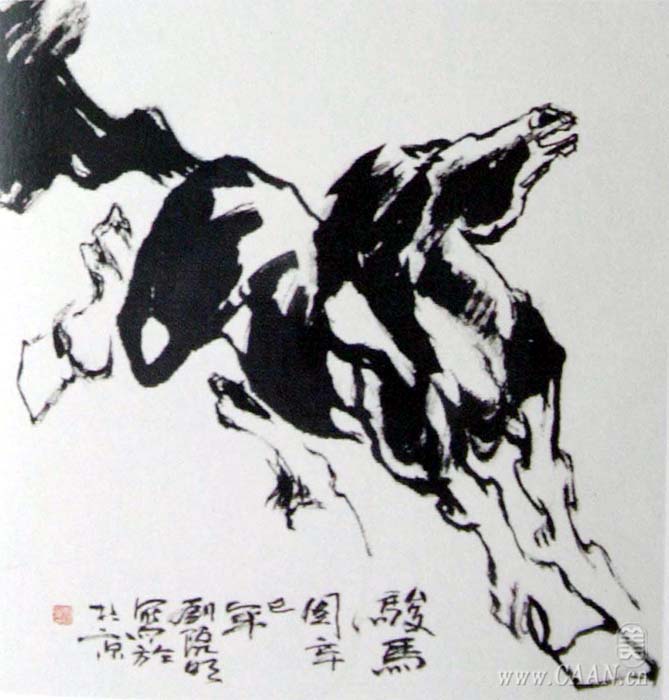 駿馬
图辛
巳年
劉
寫於
北京
www.CAAN.cn